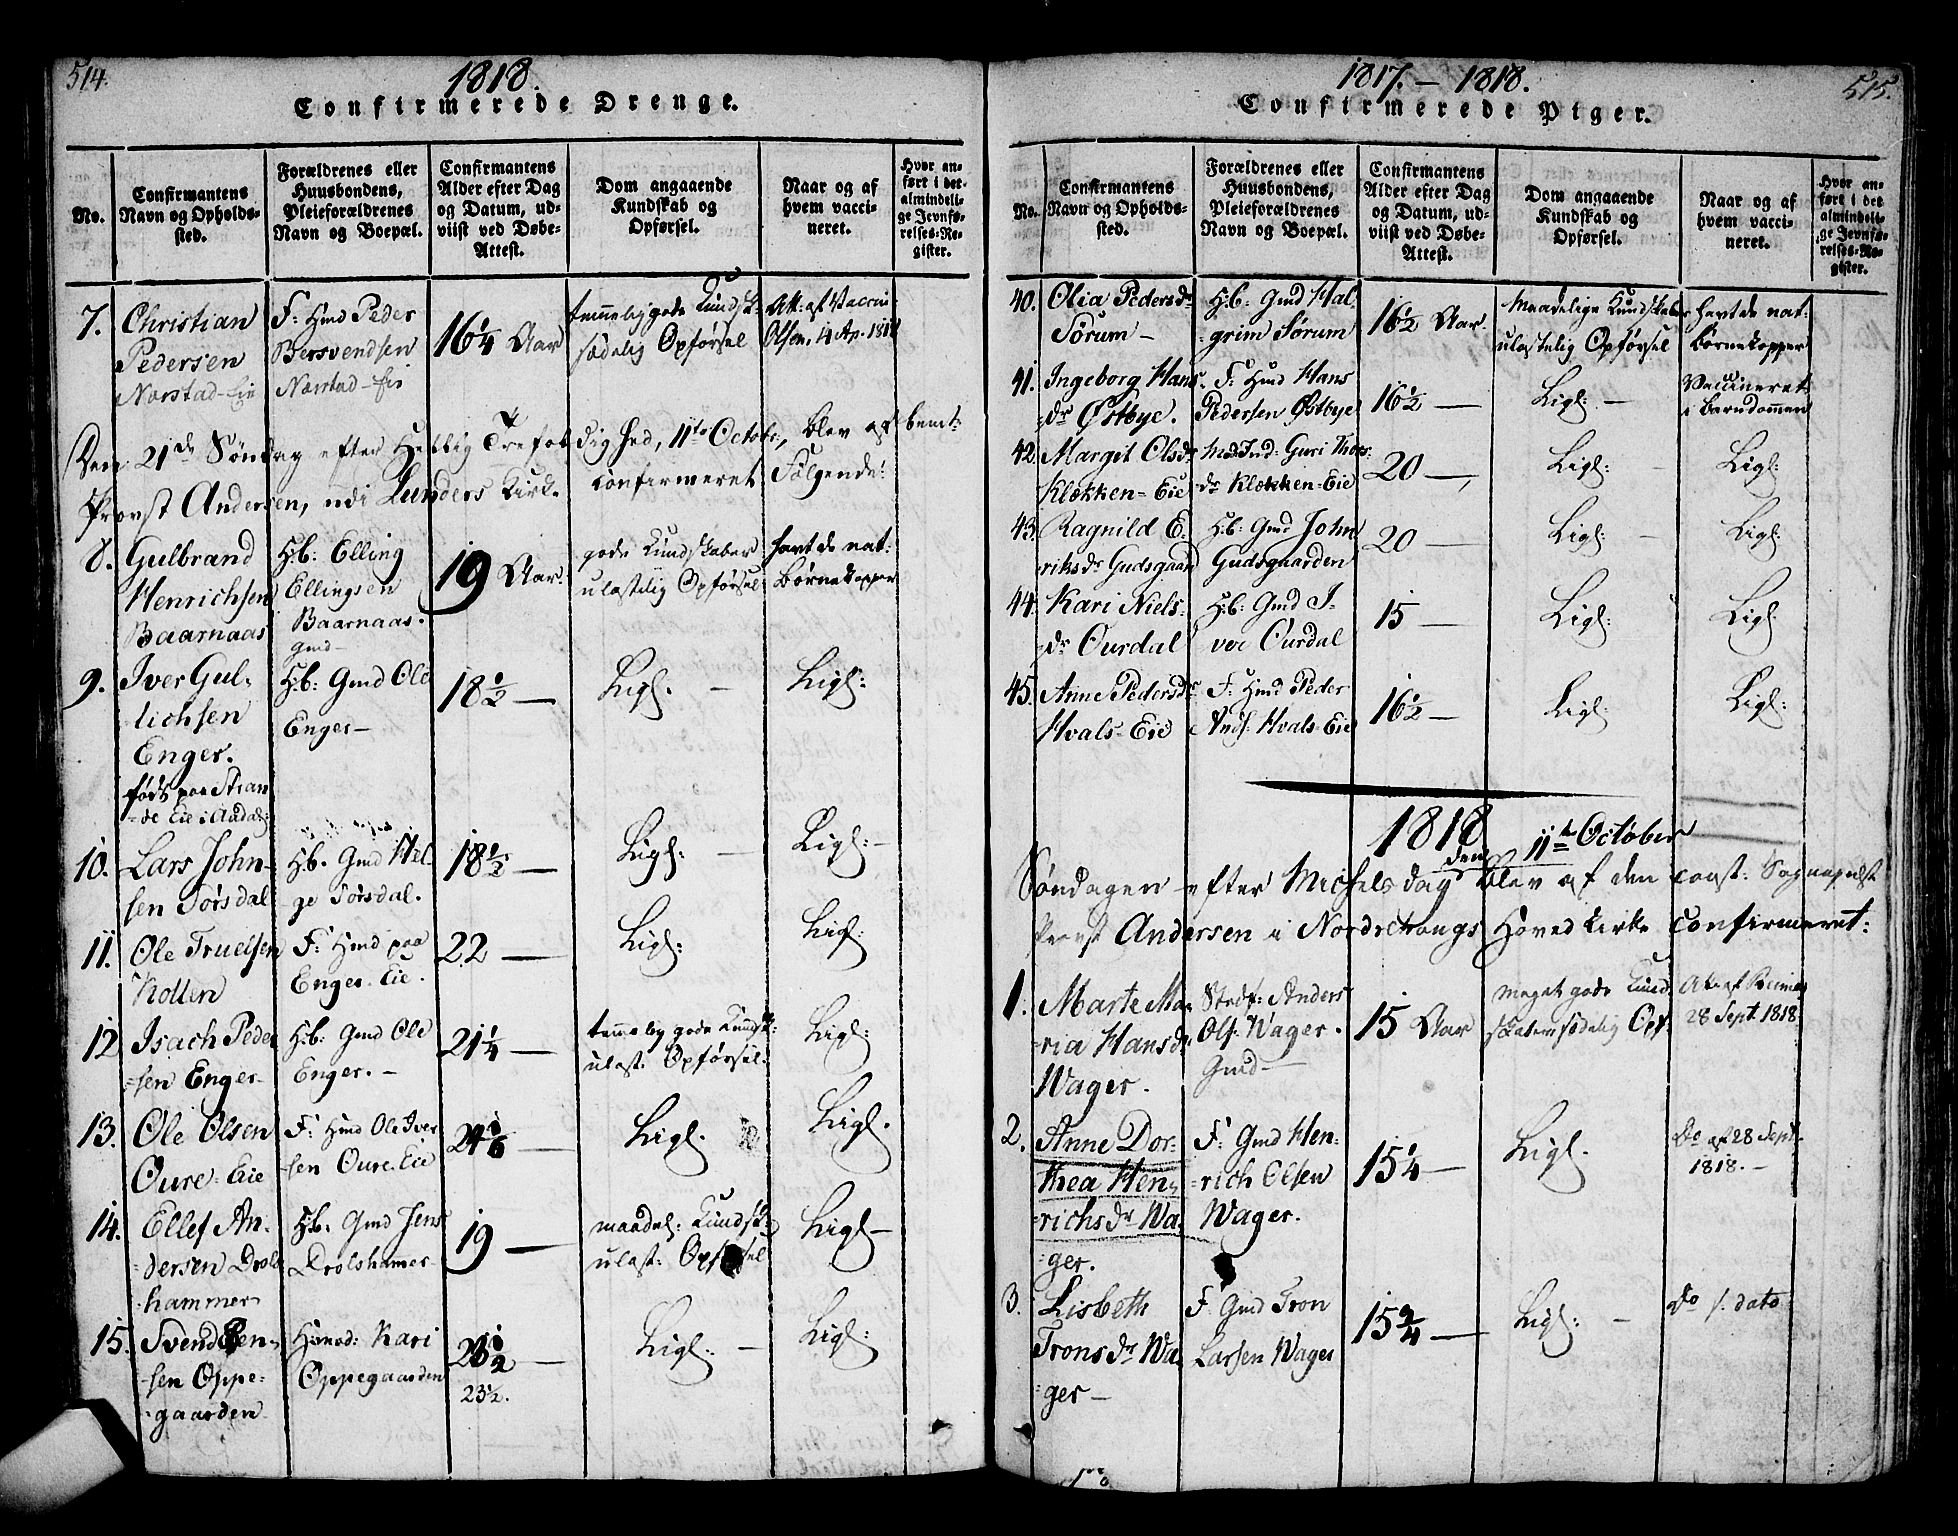 514.
1818.
Confirmerede Drenge.
No.
Confirmantens
Navn og Opholds-
sted.
Forældrenes eller
Huusbondens,
Pleieforældrenes
Navn og Boepæl.
Confirmantens
Alder efter Dag
og Datum, ud-
viist ved Døbe-
Attest.
Dom angaaende
Kundskab og
Opførsel.
Naar og af
hvem vacci-
neret.
Hvor an-
ført i det
almindeli-
ge Jevnfø-
relses-Re-
gister.
7.
Christian
Pedersen
Norstad-Eie
F: Hmd Peder
Bersvendsen
Norstad-Eie
16 1/4 Aar
temmelig gode Kundsk:
sædelig Opførsel
Att: af Vaccin:
Olsen, 4 Ap. 1818
Den 21de Søndag efter Hellig Trefoldighed, 11te Octobr, blev af bemt:
Provst Andersen, udi Lunders Kirke confirmeret Følgende:
8.
Gulbrand
Henrichsen
Baarnaas
Hb: Elling
Ellingsen
Baarnaas.
Gmd-
19 Aar
gode Kundskaber
ulastelig Opførsel
havt de nat:
Børnekopper
9.
Iver Gul-
lichsen
Enger.
født paa Stran
-de Eie i Audal:
Hb: Gmd Ole
Enger-
18 1/2 —
Ligl. —
Ligl:
10.
Lars John-
sen Tørsdal
Hb. Gmd Hel
ge Tørsdal.
18 1/2 —
Ligl: —
Ligl: -
11.
Ole Truelsen
Kollen
F: Hmd paa
Enger-Eie.
22 —
Ligl:
Ligl:
12
Isach Peder
-sen Enger-
Hb: Gmd Ole
Enger. -
21 1/4 —
temmelig gode Kundsk:
ulast. Opførsel.
Ligl:
13.
Ole Olsen
Oure-Eie
F: Hmd Ole Iver
-sen Oure-Eie
Ligl.
Ligl.
14.
Ellef An-
-dersen Drols
-hammer
Hb: Gmd Jens
Drolshamer
19 —
maadel: Kundsk:
ulast: Opførsel
Ligl -
15.
Svend
-sen Oppe-
-gaarden
Kari
Oppegaarden
23 1/2.
Ligl: -
Ligl:
1817. - 1818.
515.
Confirmerede Piger.
No.
Confirmantens
Navn og Opholds-
sted.
Forældrenes eller
Huusbondens,
Pleieforældrenes
Navn og Boepæl.
Confirmantens
Alder efter Dag
og Datum, ud-
viist ved Døbe-
Attest.
Dom angaaende
Kundskab og
Opførsel.
Naar og af
hvem vacci-
neret.
Hvor an-
ført i det
almindeli-
ge Jevnfø-
relses-Re-
gister.
40.
Olia Pedersdr
Sørum -
Hb: Gmd Hal
-grim Sørum
16 1/2 Aar.
Maadelige Kundskaber
ulastelig Opførsel
havt de nat:
Børnekopper
41.
Ingeborg Hans
-dr Østbye.
F: Hmd Hans
Pedersen Østbye
16 1/2 —
Ligl: -
Vaccineret
i Barndommen
42.
Margit Olsdr
Klækken-Eie
Guri Thors:
dr Klækken-Eie
20 —
Ligl: -
Ligl:
43.
Ragnild E.
riksdr Gudsgaard
Hb: Gmd John
Gudsgaarden
20 —
Ligl: -
Ligl:
44.
Kari Niels-
-dr Ourdal
Hb: Gmd I-
ver Ourdal
15 —
Ligl:
Ligl:
45.
Anne Pedersdr
Hvals-Eie
F: Hmd Peder
Ands: Hvals-Eie
16 1/2 —
Ligl:
Ligl:
1818
den 11te October
Søndagen efter Michels dag blev af den const: Sognepræst
Provst Andersen i Norderhougs Hovedkirke Confirmeret:
1.
Marte Ma
-ria Hansdr
Wager.
Stedf: Anders
Ols: Wager.
Gmd-
15 Aar
meget gode Kund
skaber sædelig Opf:
28 Sept. 1818
2.
Anne Dor-
thea Hen-
richsdr Wa-
-ger.
F: Gmd Hen-
-rich Olsen
Wager.
15 1/4 —
Ligl.
Do af 28 Sept.
1818. -
3.
Lisbeth
Tronsdr Wa-
ger-
F: Gmd Tron
Larsen Wager
15 3/4 —
Ligl: -
Do s. dato